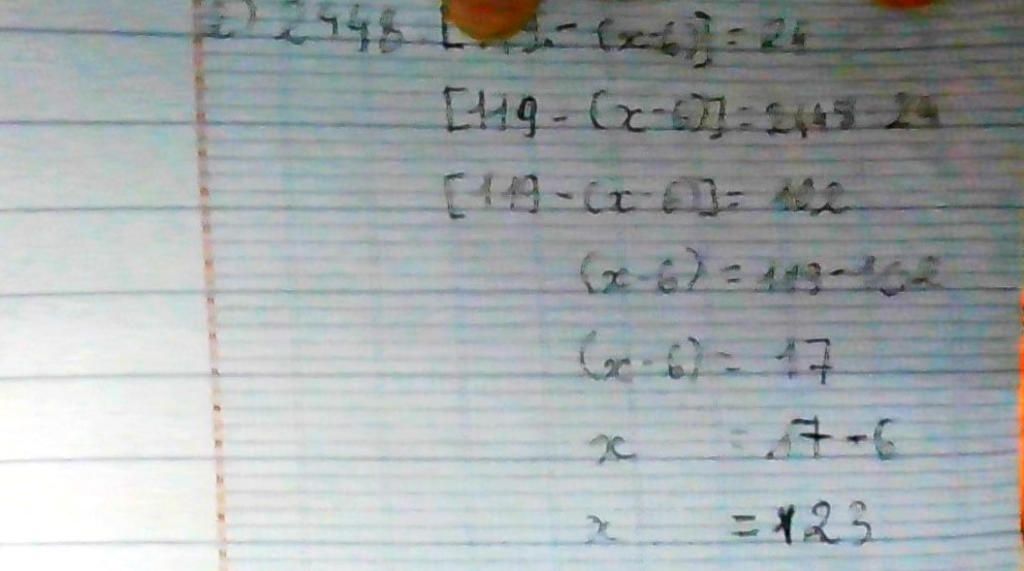 2448 [119 - (x-6)] = 24
[119 - (x-6)] = 2448 24
[119 - (x-6)] = 102
(x-6) = 119 - 102
(x-6) = 17
x = 17 - 6
x = 23